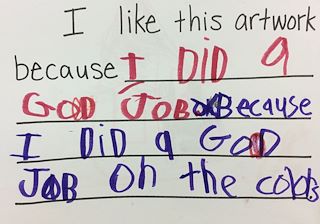 I like this artwork
because I DiD a
GOOD JOB Because
I DiD a GOOD
JOB on the colors